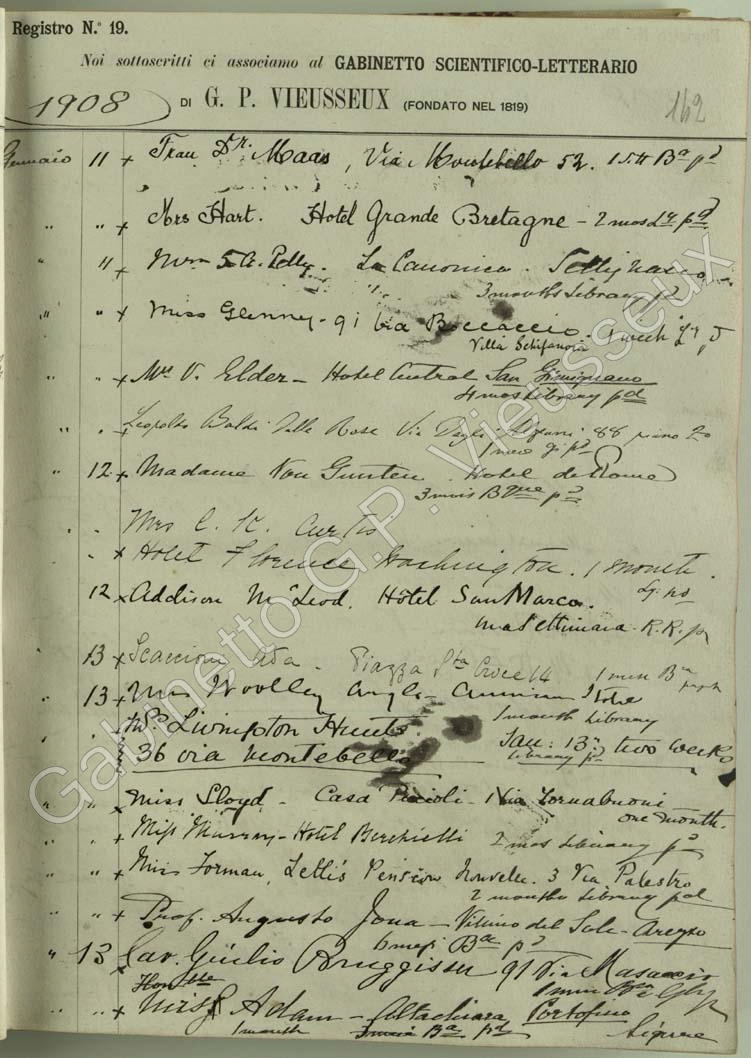 Registro N.º 19.
Noi sottoscritti ci associamo al GABINETTO SCIENTIFICO-LETTERARIO
1908 DI G. P. VIEUSSEUX (FONDATO NEL 1819) 162
Gennaio 11 x Frau Dr. Maas, Via Montebello 52. 15 Ba pd
" " x Mrs Hart. Hotel Grande Bretagne - 2 mos Ly pd
" 11 x La Canonica. Settignano
3 months Library pd
" " x Miss Glenny - 91 Via Boccaccio. 1 week
Villa Schifanoia
" " x Mrs V. Elder - Hotel Central San Gimignano
4 mos Library pd
" " x Leopoldo Baldi Delle Rose Via Degli Alfani 88 piano 2o
1 mese pd
" 12 x Madame Von Gunten. Hotel de Rome
3 mois Bque pd
" " Mrs C. K. Curtis
" x Hotel Florence Washington. 1 month.
Ly. pd
12 x Addison McLeod. Hôtel San Marco.
una settimana. R.R. pd
13 x Scaccioni Ada - Piazza Sta Croce 14 1 mese Ba
13 x Mrs Woolley Anglo-American Hotel
1 month Library
" Mrs Livingston Hunt Jan: 13. two weeks
36 via Montebello library pd
" " x Miss Lloyd - Casa Piccioli - 1 Via Tornabuoni
one month.
" " x Miss Murray - Hotel Berchielli 2 mos Library pd
" " x Miss Forman, Lelli's Pension Nouvelle. 3 Via Palestro
2 months Library pd
" " x Prof. Augusto Jona - Villino del Sole - Arezzo
6 mesi Ba pd
" 13 x Cav. Giulio Bruggisser 91 Via Masaccio
1 mese
Honble
" " x Miss Adam - Altachiara Portofino
1 month 3 mesi Ba pd Ligure
Gabinetto G.P. Vieusseux